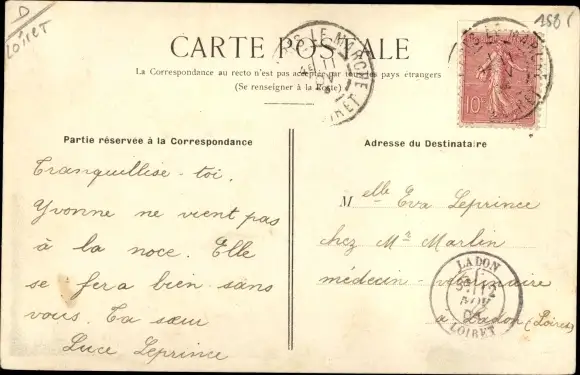 D
Loiret
1586
CARTE POSTALE
La Correspondance au recto n'est pas acceptée par tous les pays étrangers
(Se renseigner à la Poste)
S LE MARCHE
11
LOIRET
10
Partie réservée à la Correspondance
Tranquillise-toi.
Yvonne ne vient pas
à la noce. Elle
se fera bien sans
vous. Ta sœur
Luce Leprince
Adresse du Destinataire
Melle Eva Leprince
chez Mr Marlin
médecin-vétérinaire
à Ladon (Loiret)
LADON
12
NOV
LOIRET